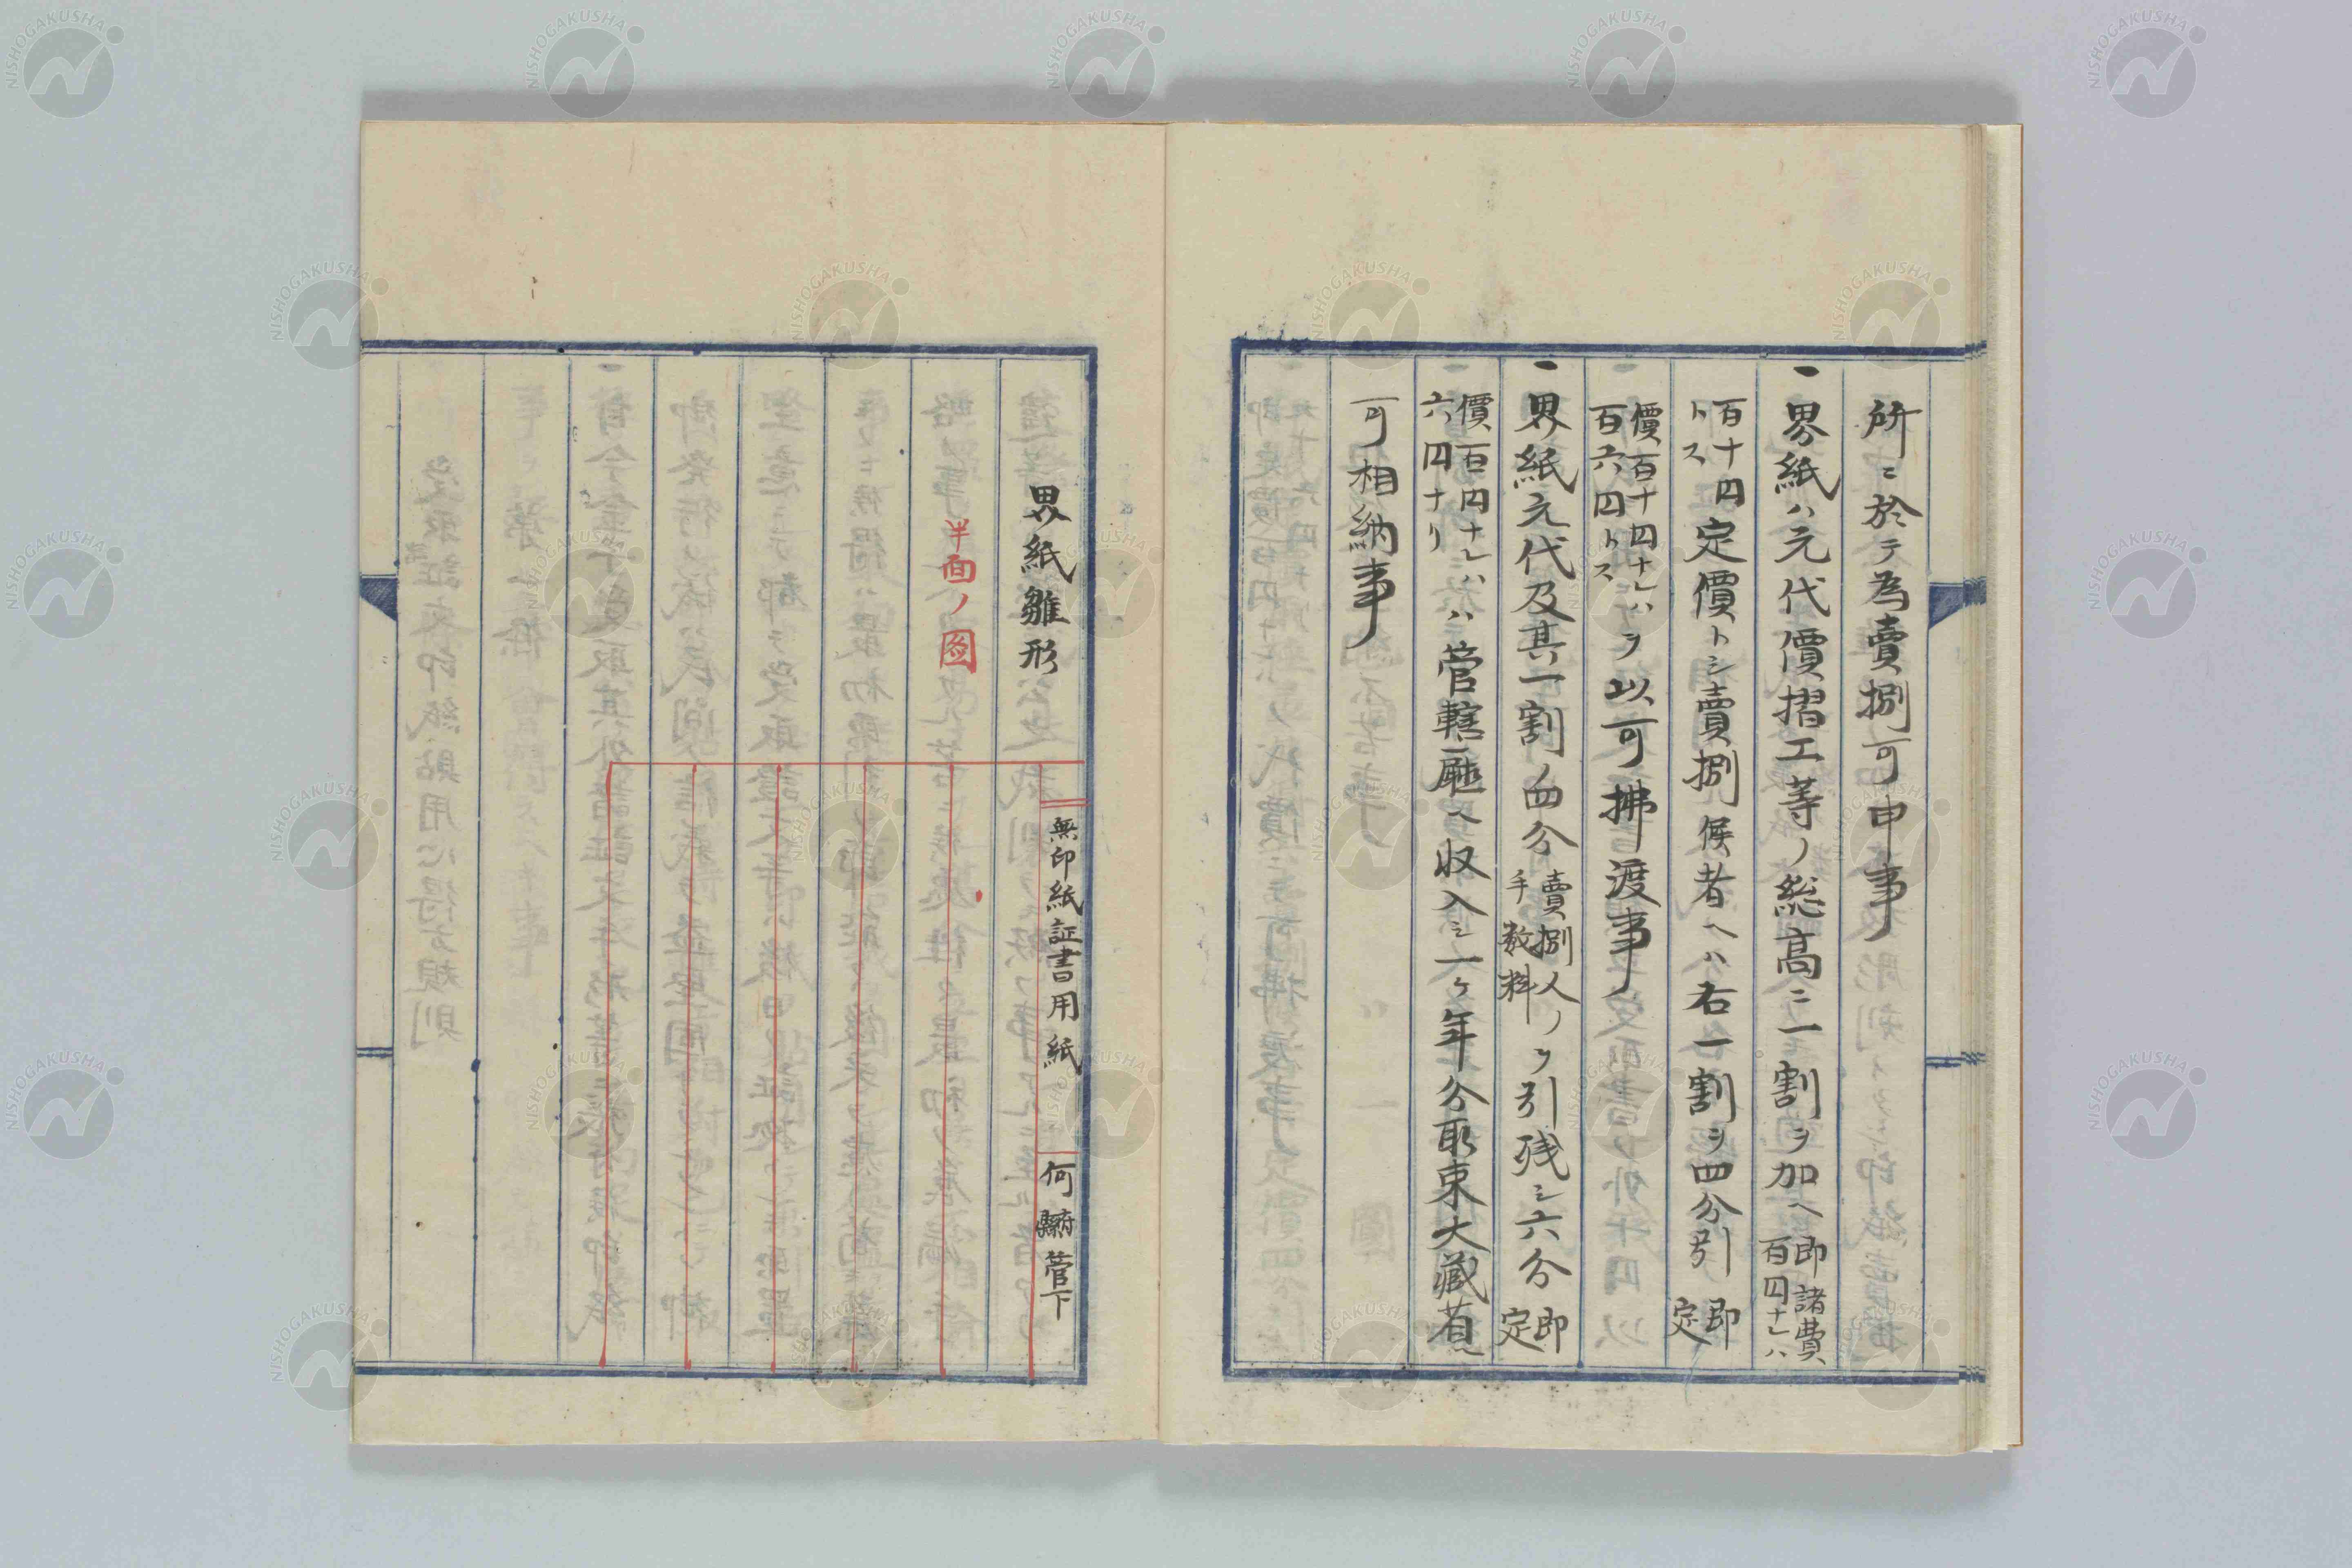 所ニ於テ為賣捌可申事
一界紙ハ元代價摺工等ノ総高ニ一割ヲ加ヘ即諸費百円ナレハ
百十円トス定價トシ賣捌候者ヘハ右一割ヲ四分引即定
價百十円ナレハ百六円トスヲ以可拂渡事
一界紙元代及其一割ノ四分賣捌人ノ手数料ヲ引残シ六分即定
價百円ナレハ六円ナリハ管轄廳ヘ収入シ一ケ年分取束大藏省ヘ
可相納事
界紙雛形
半面ノ図
無印紙証書用紙
何府縣管下
NISHOGAKUSHA